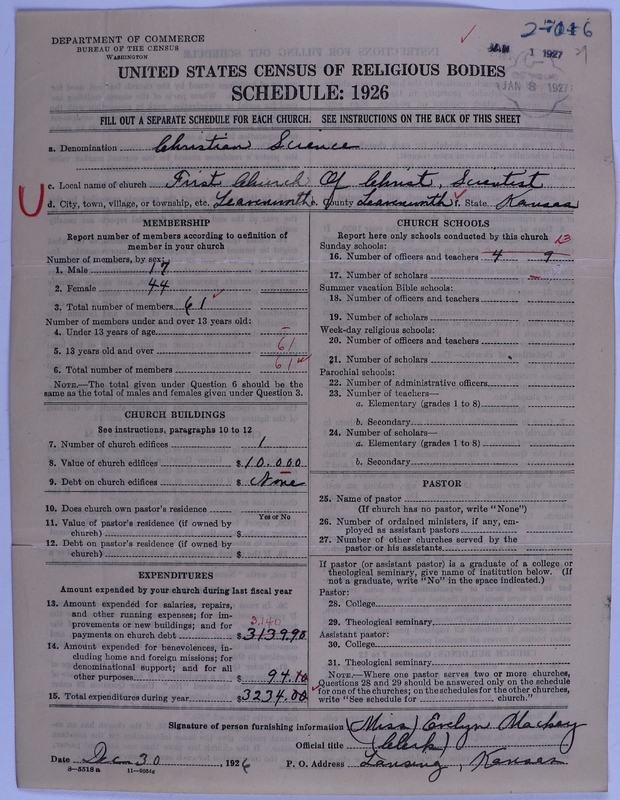 2-7016
DEPARTMENT OF COMMERCE
BUREAU OF THE CENSUS
WASHINGTON
JAN 1 1927
JAN 8 1927
UNITED STATES CENSUS OF RELIGIOUS BODIES
SCHEDULE: 1926
FILL OUT A SEPARATE SCHEDULE FOR EACH CHURCH. SEE INSTRUCTIONS ON THE BACK OF THIS SHEET
a. Denomination Christian Science
c. Local name of church First Church Of Christ, Scientist
d. City, town, village, or township, etc. Leavenworth e. County Leavenworth f. State Kansas
MEMBERSHIP
Report number of members according to definition of
member in your church
Number of members, by sex:
1. Male 17
2. Female 44
3. Total number of members 61
Number of members under and over 13 years old:
4. Under 13 years of age –
5. 13 years old and over 61
6. Total number of members 61
NOTE.—The total given under Question 6 should be the
same as the total of males and females given under Question 3.
CHURCH BUILDINGS
See instructions, paragraphs 10 to 12
7. Number of church edifices 1
8. Value of church edifices $10.000
9. Debt on church edifices $ None
10. Does church own pastor's residence
Yes or No
11. Value of pastor's residence (if owned by
church) $
12. Debt on pastor's residence (if owned by
church) $
EXPENDITURES
Amount expended by your church during last fiscal year
13. Amount expended for salaries, repairs,
and other running expenses; for im-
provements or new buildings; and for 3,140
payments on church debt $3139.90
14. Amount expended for benevolences, in-
cluding home and foreign missions; for
denominational support; and for all
other purposes $ 94.10
15. Total expenditures during year $3234.00
CHURCH SCHOOLS
Report here only schools conducted by this church 13
Sunday schools:
16. Number of officers and teachers 4 9
17. Number of scholars
Summer vacation Bible schools:
18. Number of officers and teachers
19. Number of scholars
Week-day religious schools:
20. Number of officers and teachers
21. Number of scholars
Parochial schools:
22. Number of administrative officers
23. Number of teachers—
a. Elementary (grades 1 to 8)
b. Secondary
24. Number of scholars—
a. Elementary (grades 1 to 8)
b. Secondary
PASTOR
25. Name of pastor
(If church has no pastor, write "None")
26. Number of ordained ministers, if any, em-
ployed as assistant pastors
27. Number of other churches served by the
pastor or his assistants
If pastor (or assistant pastor) is a graduate of a college or
theological seminary, give name of institution below. (If
not a graduate, write "No" in the space indicated.)
Pastor:
28. College
29. Theological seminary
Assistant pastor:
30. College
31. Theological seminary
NOTE.—Where one pastor serves two or more churches,
Questions 28 and 29 should be answered only on the schedule
for one of the churches; on the schedules for the other churches,
write "See schedule for church."
Signature of person furnishing information (Miss) Evelyn Mackey
Official title (Clerk)
Date Dec 30, 1926 P. O. Address Lansing, Kansas
8—5518 a 11—9054